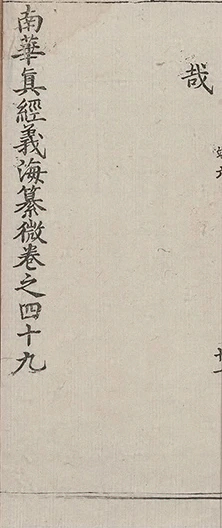 哉
南華眞經義海纂微卷之四十九